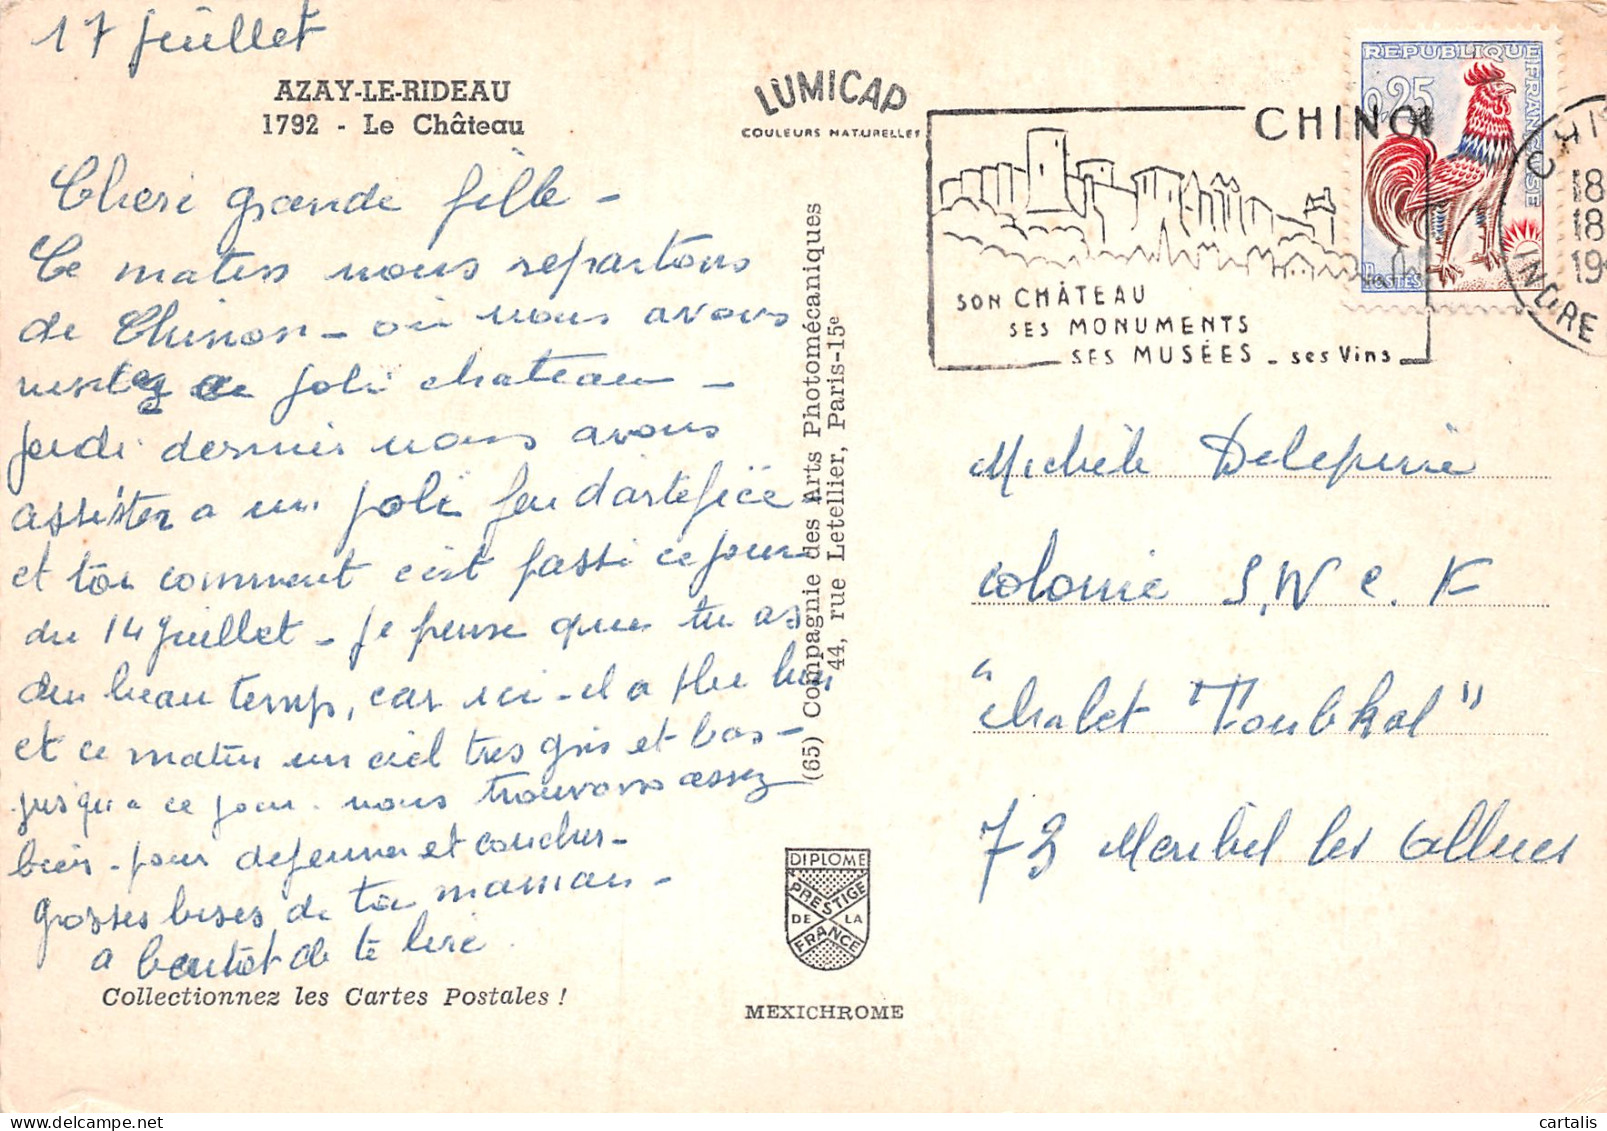 17 juillet
AZAY-LE-RIDEAU
1792 - Le Château
Cheri grande fille -
Ce matin nous repartons
de Chinon - où nous avons
visitez ce joli chateau -
jeudi dernier nous avons
assister a un joli feu d'artefice
et toi comment c'est passé ce jour
du 14 juillet - je pense que tu as
du beau temps, car ici - il a plu hier
et ce matin un ciel tres gris et bas -
jusqu'a ce jour nous trouvons assez
bien - pour dejeuner et coucher -
grosses bises de ta maman -
a bientôt de te lire.
Collectionnez les Cartes Postales !
LUMICAP
COULEURS NATURELLES
(65) Compagnie des Arts Photomécaniques
44, rue Letellier, Paris-15e
DIPLOME
PRESTIGE
DE LA
FRANCE
MEXICHROME
REPUBLIQUE FRANÇAISE
0,25
POSTES
CHINON
SON CHÂTEAU
SES MONUMENTS
SES MUSÉES - ses Vins
CHIN
18
18
19
INDRE
Michèle
colonie S.N.C.F
"chalet Toubkal"
73 Meribel les Allues
cartalis